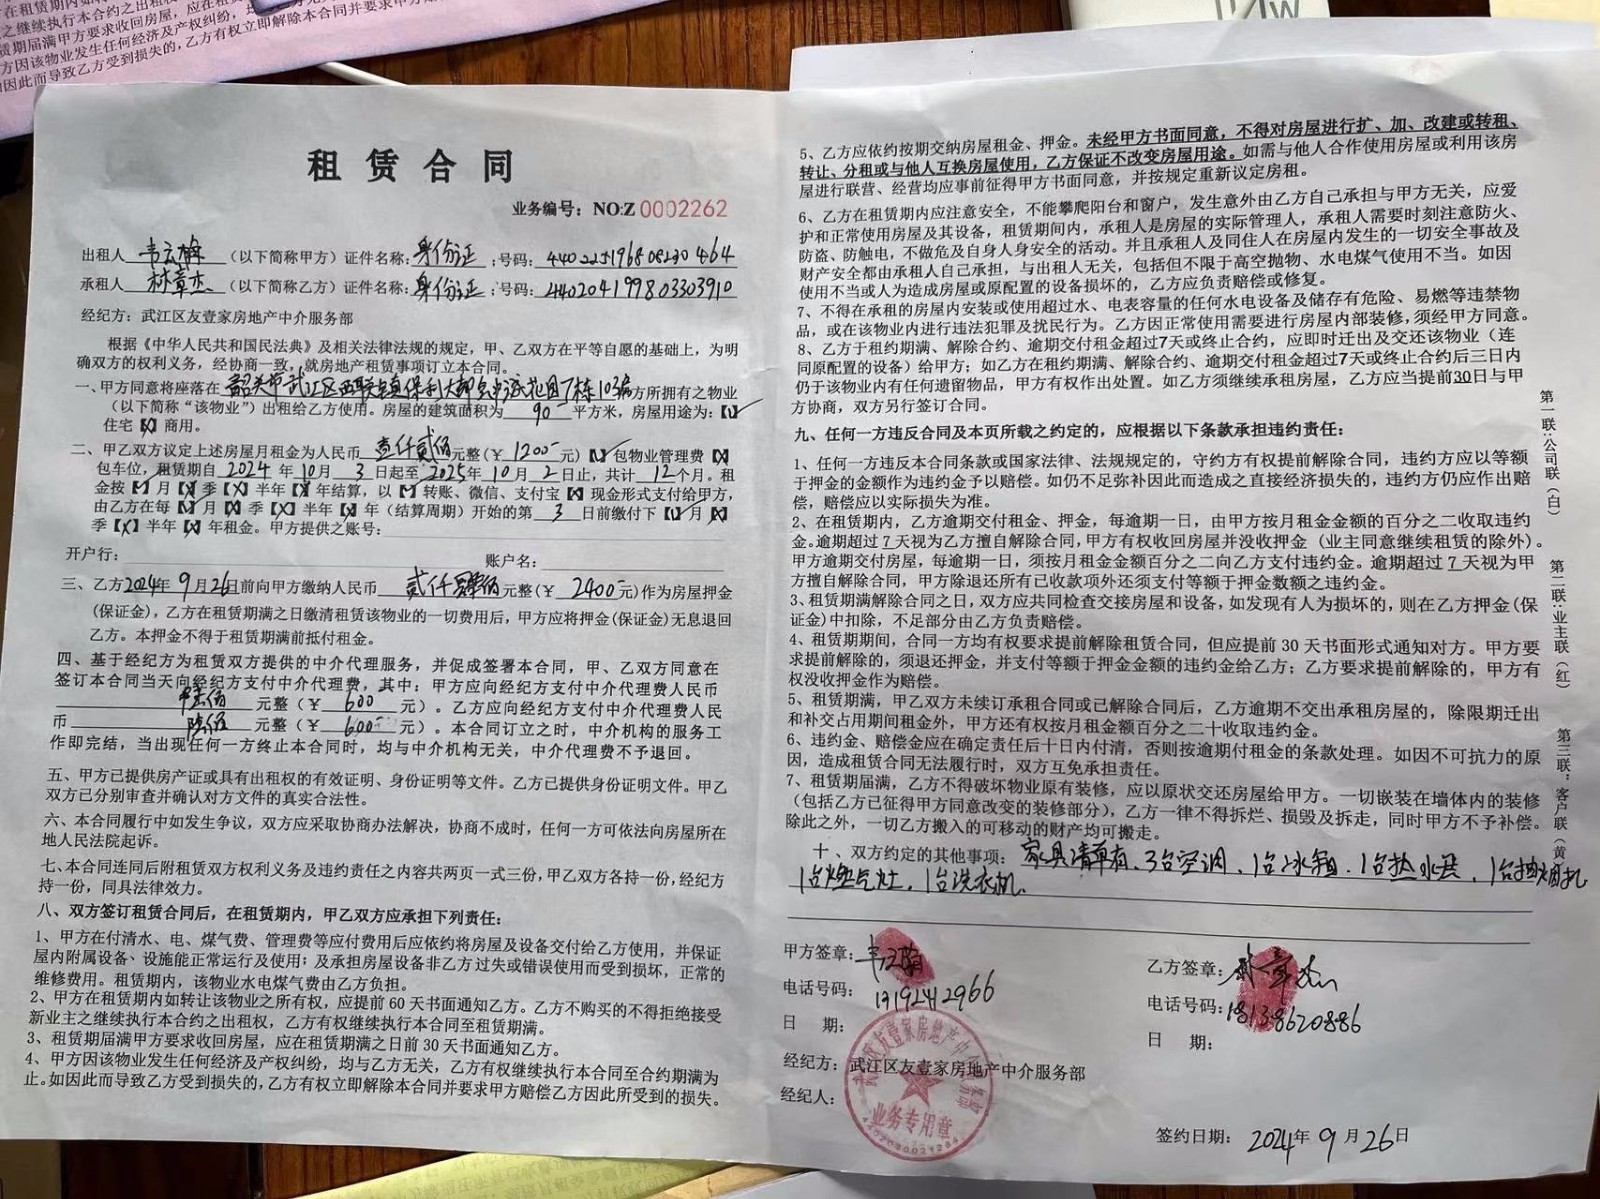 租赁合同
业务编号：NO:Z 0002262
出租人 韦云梅 （以下简称甲方）证件名称：身份证；号码：440225196808230464
承租人 林章杰 （以下简称乙方）证件名称：身份证；号码：440204199803303910
经纪方：武江区友壹家房地产中介服务部
根据《中华人民共和国民法典》及相关法律法规的规定，甲、乙双方在平等自愿的基础上，为明
确双方的权利义务，经协商一致，就房地产租赁事项订立本合同。
一、甲方同意将座落在 韶关市武江区西联镇保利大都会中滨花园7栋103房 方所拥有之物业
（以下简称“该物业”）出租给乙方使用。房屋的建筑面积为 90 平方米，房屋用途为：【✓】
住宅【X】商用。
二、甲乙双方议定上述房屋月租金为人民币 壹仟贰佰 元整（￥1200 元）【✓】包物业管理费【X】
包车位，租赁期自 2024 年 10 月 3 日起至 2025 年 10 月 2 日止，共计 12 个月。租
金按【✓】月【X】季【X】半年【X】年结算，以【✓】转账、微信、支付宝【X】现金形式支付给甲方，
由乙方在每【✓】月【X】季【X】半年【X】年（结算周期）开始的第 3 日前缴付下【✓】月【X】
季【X】半年【X】年租金。甲方提供之账号：
开户行： 账户名：
三、乙方2024年9月26日前向甲方缴纳人民币 贰仟肆佰 元整（￥2400元）作为房屋押金
（保证金），乙方在租赁期满之日缴清租赁该物业的一切费用后，甲方应将押金（保证金）无息退回
乙方。本押金不得于租赁期满前抵付租金。
四、基于经纪方为租赁双方提供的中介代理服务，并促成签署本合同，甲、乙双方同意在
签订本合同当天向经纪方支付中介代理费，其中：甲方应向经纪方支付中介代理费人民币
陆佰 元整（￥600 元）。乙方应向经纪方支付中介代理费人民
币 陆佰 元整（￥600 元）。本合同订立之时，中介机构的服务工
作即完结，当出现任何一方终止本合同时，均与中介机构无关，中介代理费不予退回。
五、甲方已提供房产证或具有出租权的有效证明、身份证明等文件。乙方已提供身份证明文件。甲乙
双方已分别审查并确认对方文件的真实合法性。
六、本合同履行中如发生争议，双方应采取协商办法解决，协商不成时，任何一方可依法向房屋所在
地人民法院起诉。
七、本合同连同后附租赁双方权利义务及违约责任之内容共两页一式三份，甲乙双方各持一份，经纪方
持一份，同具法律效力。
八、双方签订租赁合同后，在租赁期内，甲乙双方应承担下列责任：
1、甲方在付清水、电、煤气费、管理费等应付费用后应依约将房屋及设备交付给乙方使用，并保证
屋内附属设备、设施能正常运行及使用；及承担房屋设备非乙方过失或错误使用而受到损坏，正常的
维修费用。租赁期内，该物业水电煤气费由乙方负担。
2、甲方在租赁期内如转让该物业之所有权，应提前60天书面通知乙方。乙方不购买的不得拒绝接受
新业主之继续执行本合约之出租权，乙方有权继续执行本合同至租赁期满。
3、租赁期届满甲方要求收回房屋，应在租赁期满之日前30天书面通知乙方。
4、甲方因该物业发生任何经济及产权纠纷，均与乙方无关，乙方有权继续执行本合同至合约期满为
止。如因此而导致乙方受到损失的，乙方有权立即解除本合同并要求甲方赔偿乙方因此所受到的损失。
5、乙方应依约按期交纳房屋租金、押金。未经甲方书面同意，不得对房屋进行扩、加、改建或转租、
转让、分租或与他人互换房屋使用，乙方保证不改变房屋用途。如需与他人合作使用房屋或利用该房
屋进行联营、经营均应事前征得甲方书面同意，并按规定重新议定房租。
6、乙方在租赁期内应注意安全，不能攀爬阳台和窗户，发生意外由乙方自己承担与甲方无关，应爱
护和正常使用房屋及其设备，租赁期间内，承租人是房屋的实际管理人，承租人需要时刻注意防火、
防盗、防触电，不做危及自身人身安全的活动。并且承租人及同住人在房屋内发生的一切安全事故及
财产安全都由承租人自己承担，与出租人无关，包括但不限于高空抛物、水电煤气使用不当。如因
使用不当或人为造成房屋或原配置的设备损坏的，乙方应负责赔偿或修复。
7、不得在承租的房屋内安装或使用超过水、电表容量的任何水电设备及储存有危险、易燃等违禁物
品，或在该物业内进行违法犯罪及扰民行为。乙方因正常使用需要进行房屋内部装修，须经甲方同意。
8、乙方于租约期满、解除合约、逾期交付租金超过7天或终止合约，应即时迁出及交还该物业（连
同原配置的设备）给甲方；如乙方在租约期满、解除合约、逾期交付租金超过7天或终止合约后三日内
仍于该物业内有任何遗留物品，甲方有权作出处置。如乙方须继续承租房屋，乙方应当提前30日与甲
方协商，双方另行签订合同。
九、任何一方违反合同及本页所载之约定的，应根据以下条款承担违约责任：
1、任何一方违反本合同条款或国家法律、法规规定的，守约方有权提前解除合同，违约方应以等额
于押金的金额作为违约金予以赔偿。如仍不足弥补因此而造成之直接经济损失的，违约方仍应作出赔
偿，赔偿应以实际损失为准。
2、在租赁期内，乙方逾期交付租金、押金，每逾期一日，由甲方按月租金金额的百分之二收取违约
金。逾期超过7天视为乙方擅自解除合同，甲方有权收回房屋并没收押金（业主同意继续租赁的除外）。
甲方逾期交付房屋，每逾期一日，须按月租金金额百分之二向乙方支付违约金。逾期超过7天视为甲
方擅自解除合同，甲方除退还所有已收款项外还须支付等额于押金数额之违约金。
3、租赁期满解除合同之日，双方应共同检查交接房屋和设备，如发现有人为损坏的，则在乙方押金（保
证金）中扣除，不足部分由乙方负责赔偿。
4、租赁期期间，合同一方均有权要求提前解除租赁合同，但应提前30天书面形式通知对方。甲方要
求提前解除的，须退还押金，并支付等额于押金金额的违约金给乙方；乙方要求提前解除的，甲方有
权没收押金作为赔偿。
5、租赁期满，甲乙双方未续订承租合同或已解除合同后，乙方逾期不交出承租房屋的，除限期迁出
和补交占用期间租金外，甲方还有权按月租金额百分之二十收取违约金。
6、违约金、赔偿金应在确定责任后十日内付清，否则按逾期付租金的条款处理。如因不可抗力的原
因，造成租赁合同无法履行时，双方互免承担责任。
7、租赁期届满，乙方不得破坏物业原有装修，应以原状交还房屋给甲方。一切嵌装在墙体内的装修
（包括乙方已征得甲方同意改变的装修部分），乙方一律不得拆烂、损毁及拆走，同时甲方不予补偿。
除此之外，一切乙方搬入的可移动的财产均可搬走。
十、双方约定的其他事项：家具清单有、3台空调、1台冰箱、1台热水器、1台抽烟机
1台燃气灶、1台洗衣机。
甲方签章：韦云梅
电话号码：13192412966
日 期：
经纪方：武江区友壹家房地产中介服务部
经纪人：
乙方签章：林章杰
电话号码：18138620886
日 期：
签约日期：2024年9月26日
武江区友壹家房地产中介服务部
业务专用章
第一联：公司联（白）
第二联：业主联（红）
第三联：客户联（黄）
之继续执行本合约之出租权
赁期届满甲方要求收回房屋，应在租
方因该物业发生任何经济及产权纠纷，均
如因此而导致乙方受到损失的，乙方有权立即解除本合同并要求甲方